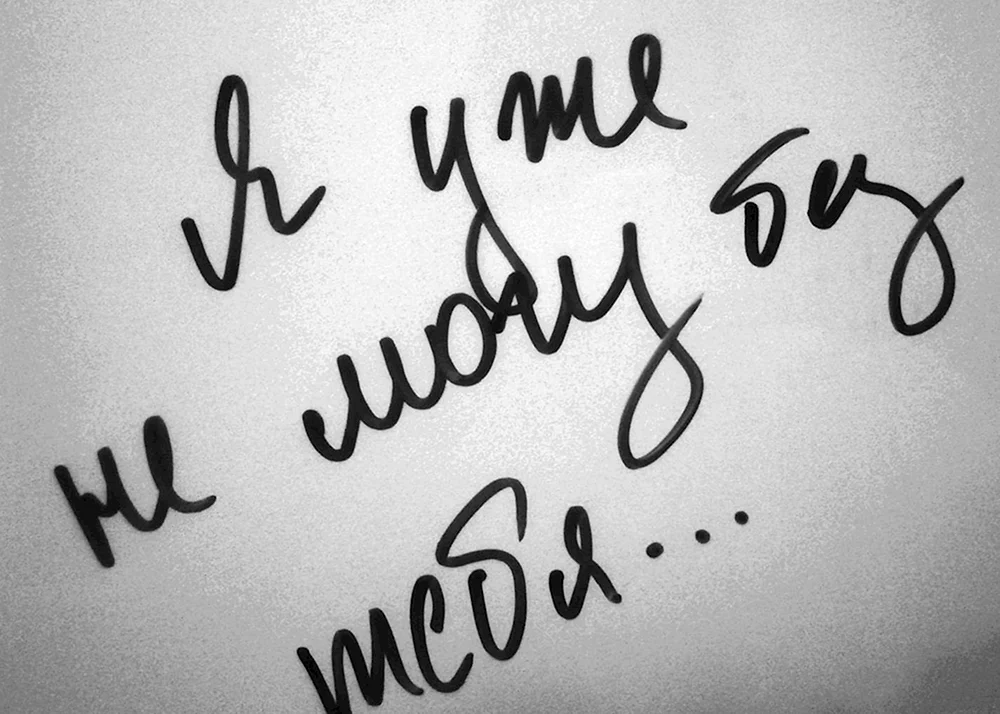 Я уже
не могу без
тебя...